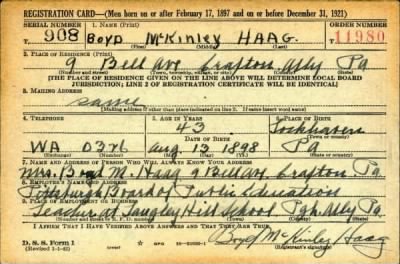 REGISTRATION CARD—(Men born on or after February 17, 1897 and on or before December 31, 1921)
SERIAL NUMBER 1. NAME (Print) ORDER NUMBER
U 908 Boyd McKinley HAAG. 11980
(First) (Middle) (Last)
2. PLACE OF RESIDENCE (Print)
9 Bell Ave Crafton, Ally Pa
(Number and street) (Town, township, village, or city) (County) (State)
[THE PLACE OF RESIDENCE GIVEN ON THE LINE ABOVE WILL DETERMINE LOCAL BOARD
JURISDICTION; LINE 2 OF REGISTRATION CERTIFICATE WILL BE IDENTICAL]
3. MAILING ADDRESS
same
[Mailing address if other than place indicated on line 2. If same insert word same]
4. TELEPHONE 5. AGE IN YEARS 6. PLACE OF BIRTH
43 Lockhaven
DATE OF BIRTH (Town or county)
WA 0376 Aug 13 1898 Pa
(Exchange) (Number) (Mo.) (Day) (Yr.) (State or country)
7. NAME AND ADDRESS OF PERSON WHO WILL ALWAYS KNOW YOUR ADDRESS
Mrs. Boyd M. Haag 9 Bell Ave, Crafton Pa
8. EMPLOYER'S NAME AND ADDRESS
Pittsburgh Board of Public Education
9. PLACE OF EMPLOYMENT OR BUSINESS
Teacher at Langley High School Pgh. Ally Pa
(Number and street or R. F. D. number) (Town) (County) (State)
I AFFIRM THAT I HAVE VERIFIED ABOVE ANSWERS AND THAT THEY ARE TRUE.
D. S. S. Form 1 GPO Boyd McKinley Haag
(Revised 1-1-42) (over)